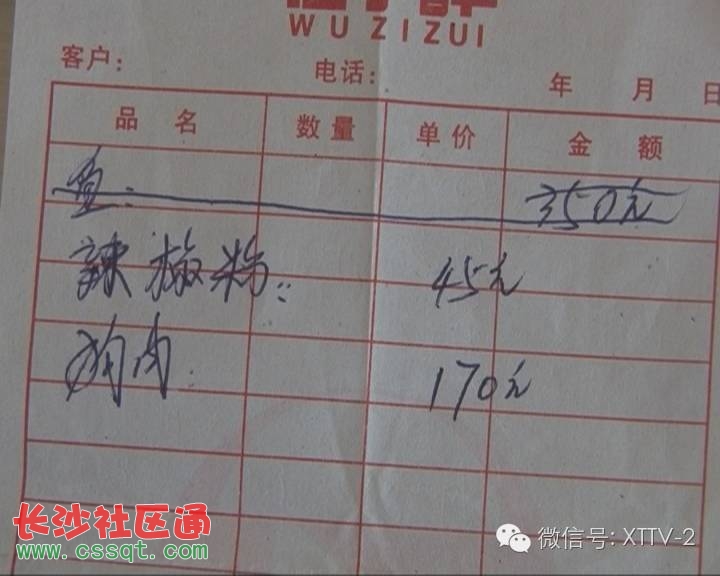 WUZIZUI
客户： 电话： 年 月 日
品名 数量 单价 金额
鱼： 350元
辣椒粉： 45元
狗肉 170元
长沙社区通
www.cssqt.com
微信号: XTTV-2